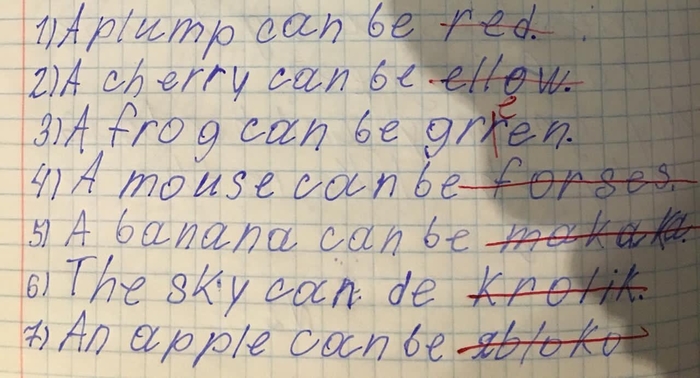 1) A plump can be red.
2) A cherry can be ellow.
3) A frog can be grren. e
4) A mouse can be forses.
5) A banana can be makaka.
6) The sky can de krolik.
7) An apple can be abloko